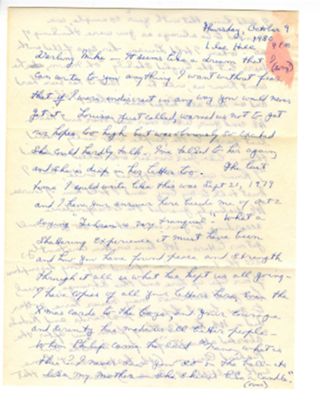 Thursday, October 9
1980
9 P.M.
Darling Mike — It seems like a dream that I
can write to you anything I want without fear
that if I was indiscreet in any way you would never
get it. Louisa just called, warned us not to get
our hopes too high but was obviously so excited
she could hardly talk. I've talked to her again
and she is deep in her letter too. The last
time I could write like this was Sept 21, 1979
and I have your answer here beside me of Oct 2
saying "Tehran is very tranquil." What a
shattering experience it must have been
and how you have found peace and strength
through it all is what has kept us all going.
I have copies of all your letters here, even the
Xmas cards to the boys, and your courage
and serenity has made us all better people.
When Philip came he
my mother
(over)